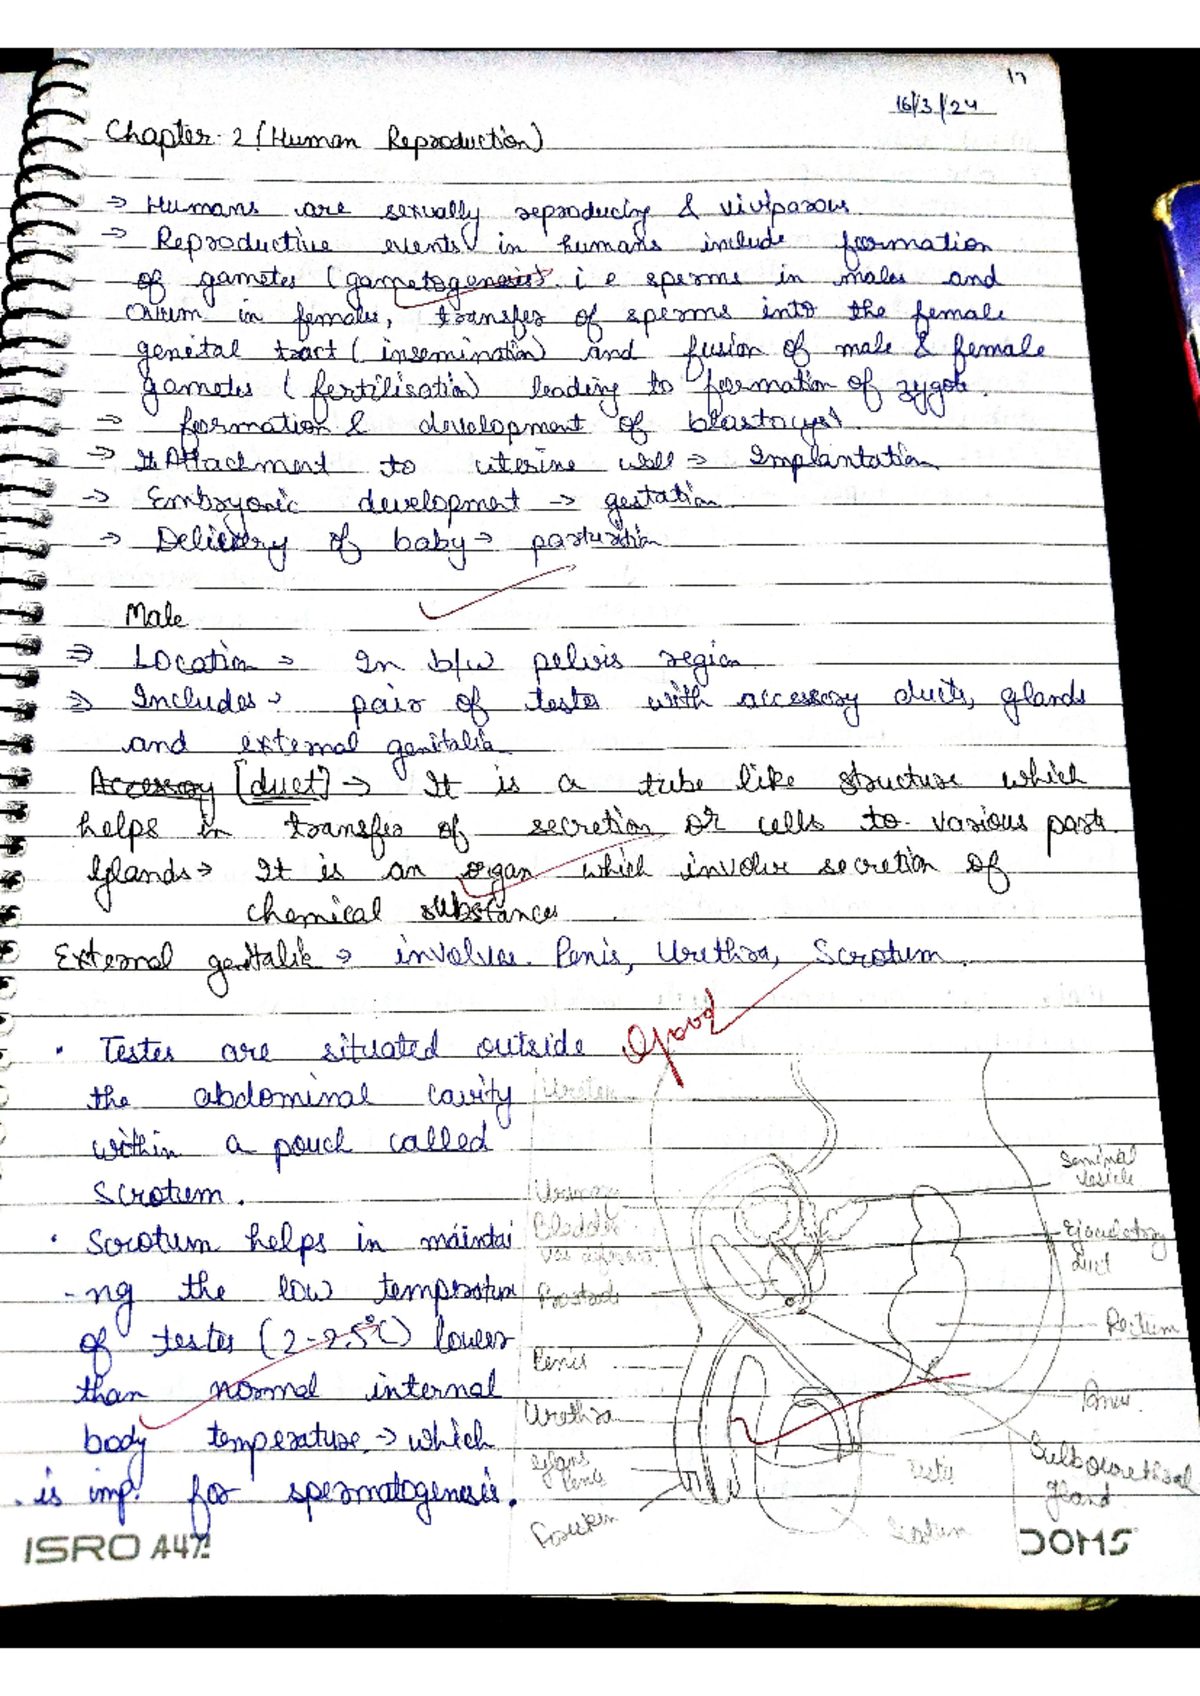 17
16/3/24
Chapter-2 (Human Reproduction)
→ Humans are sexually reproducing & viviparous
→ Reproductive events in humans include formation
of gametes (gametogenesis) i.e sperms in males and
Ovum in females, transfer of sperms into the female
genital tract (insemination) and fusion of male & female
gametes (fertilisation) leading to formation of zygote.
→ formation & development of blastocyst.
→ Attachment to uterine wall → Implantation
→ Embryonic development → gestation
→ Delivery of baby → parturition
Male
⇒ Location → In b/w pelvis region
⇒ Includes → pair of testes with accessory ducts, glands
and external genitalia
Accessory [duct] → It is a tube like structure which
helps in transfer of secretion or cells to various parts.
Glands → It is an organ which involve secretion of
chemical substances.
External genitalia → involves Penis, Urethra, Scrotum.
Good
• Testes are situated outside
the abdominal cavity
within a pouch called
Scrotum.
• Scrotum helps in maintai
-ng the low temperature
of testes (2-2.5°C) lower
than normal internal
body temperature → which
is imp. for spermatogenesis.
Ureter
Urinary
Bladder
Vas deferens
Prostate
Penis
Urethra
glans
penis
Foreskin
Seminal
vesicle
Ejaculatory
duct
Rectum
Anus
Bulbourethral
gland
testis
Scrotum
ISRO A47
DOMS